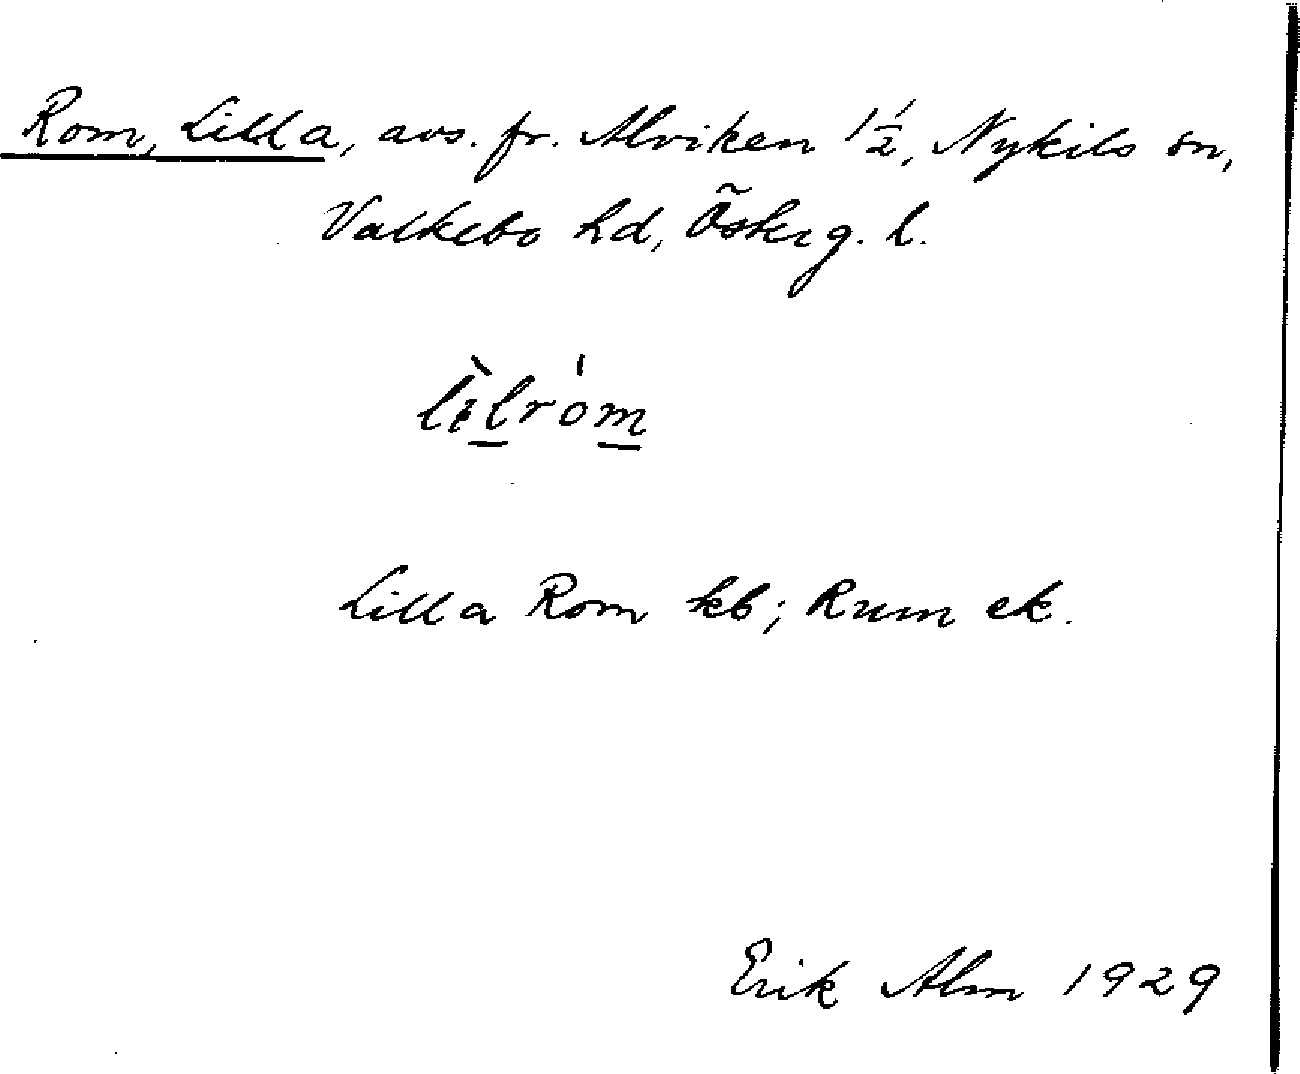 Rom, Lilla, avs. fr. Alviken 1 1/2, Nykils sn,
Valkebo hd, Östergl.
lìlróm
Lilla Rom kb; Rum ek.
Erik Alm 1929